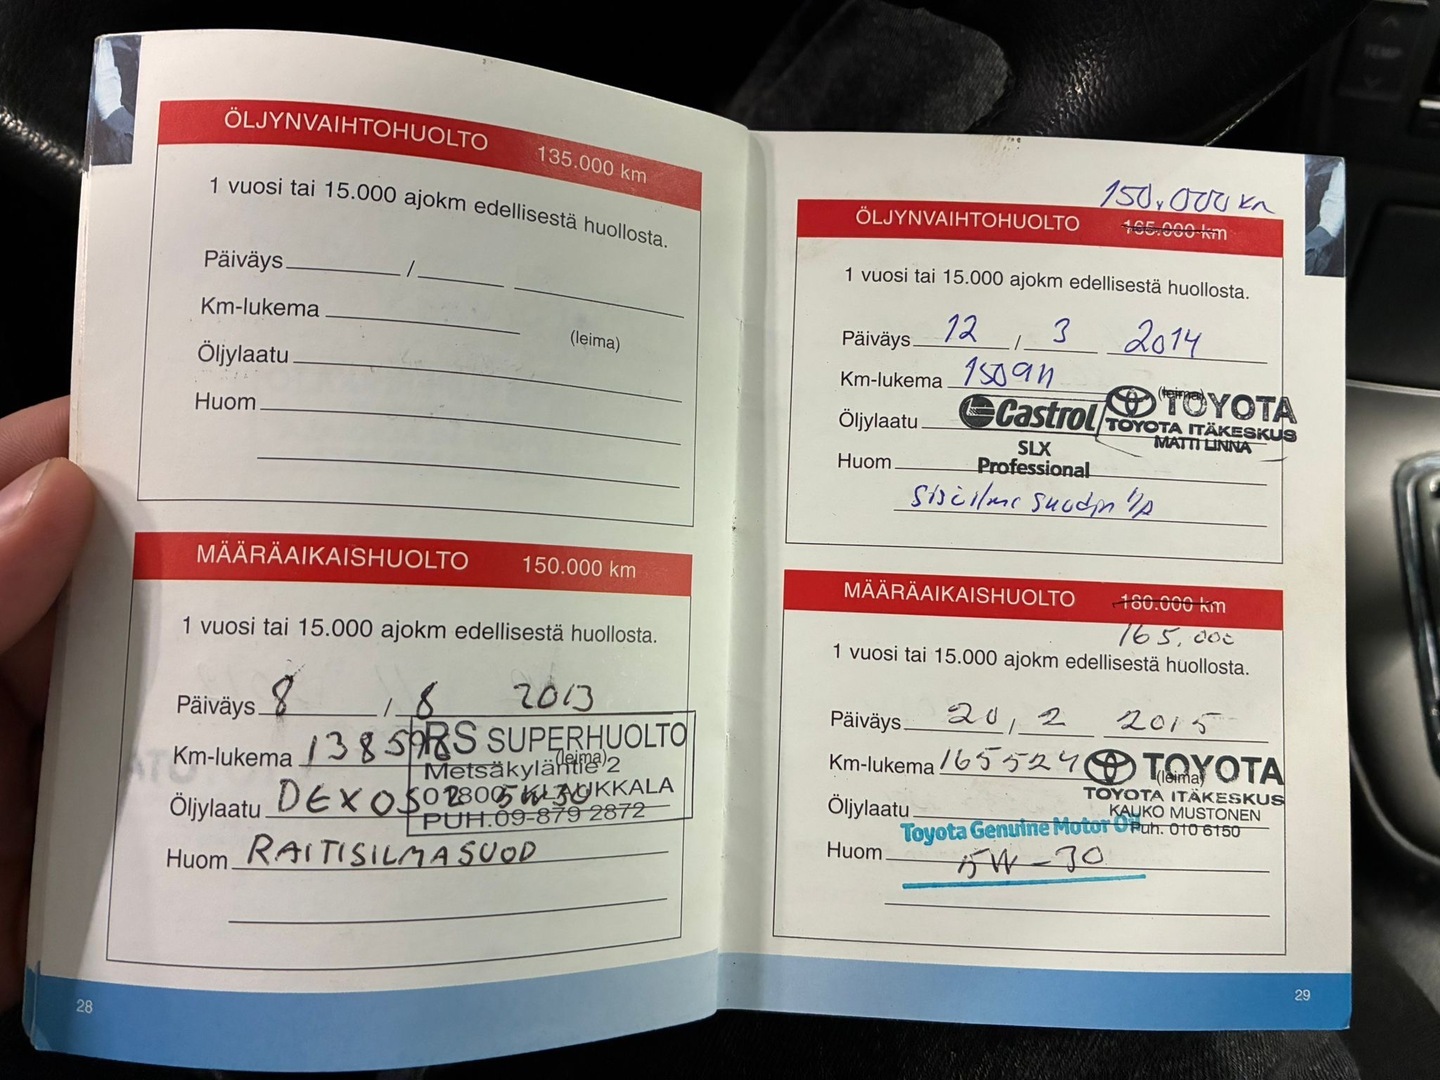 ÖLJYNVAIHTOHUOLTO 135.000 km
1 vuosi tai 15.000 ajokm edellisestä huollosta.
Päiväys /
Km-lukema
(leima)
Öljylaatu
Huom
MÄÄRÄAIKAISHUOLTO 150.000 km
1 vuosi tai 15.000 ajokm edellisestä huollosta.
Päiväys 8 / 8 2013
RS SUPERHUOLTO
Km-lukema 138598 (leima)
Metsäkyläntie 2
Öljylaatu DEXOS 2 5W30
01800 KLAUKKALA
PUH.09-879 2872
Huom RAITISILMASUOD
28
150.000 km
ÖLJYNVAIHTOHUOLTO 165.000 km
1 vuosi tai 15.000 ajokm edellisestä huollosta.
Päiväys 12 / 3 2014
Km-lukema 150911
(leima)
TOYOTA
Öljylaatu Castrol
TOYOTA ITÄKESKUS
MATTI LINNA
SLX
Huom Professional
sisäilma suodin
MÄÄRÄAIKAISHUOLTO 180.000 km
165.000
1 vuosi tai 15.000 ajokm edellisestä huollosta.
Päiväys 20 / 2 2015
Km-lukema 165524
TOYOTA
(leima)
TOYOTA ITÄKESKUS
Öljylaatu
KAUKO MUSTONEN
Toyota Genuine Motor Oil
Puh. 010 6150
Huom 5W-30
29
TEMP